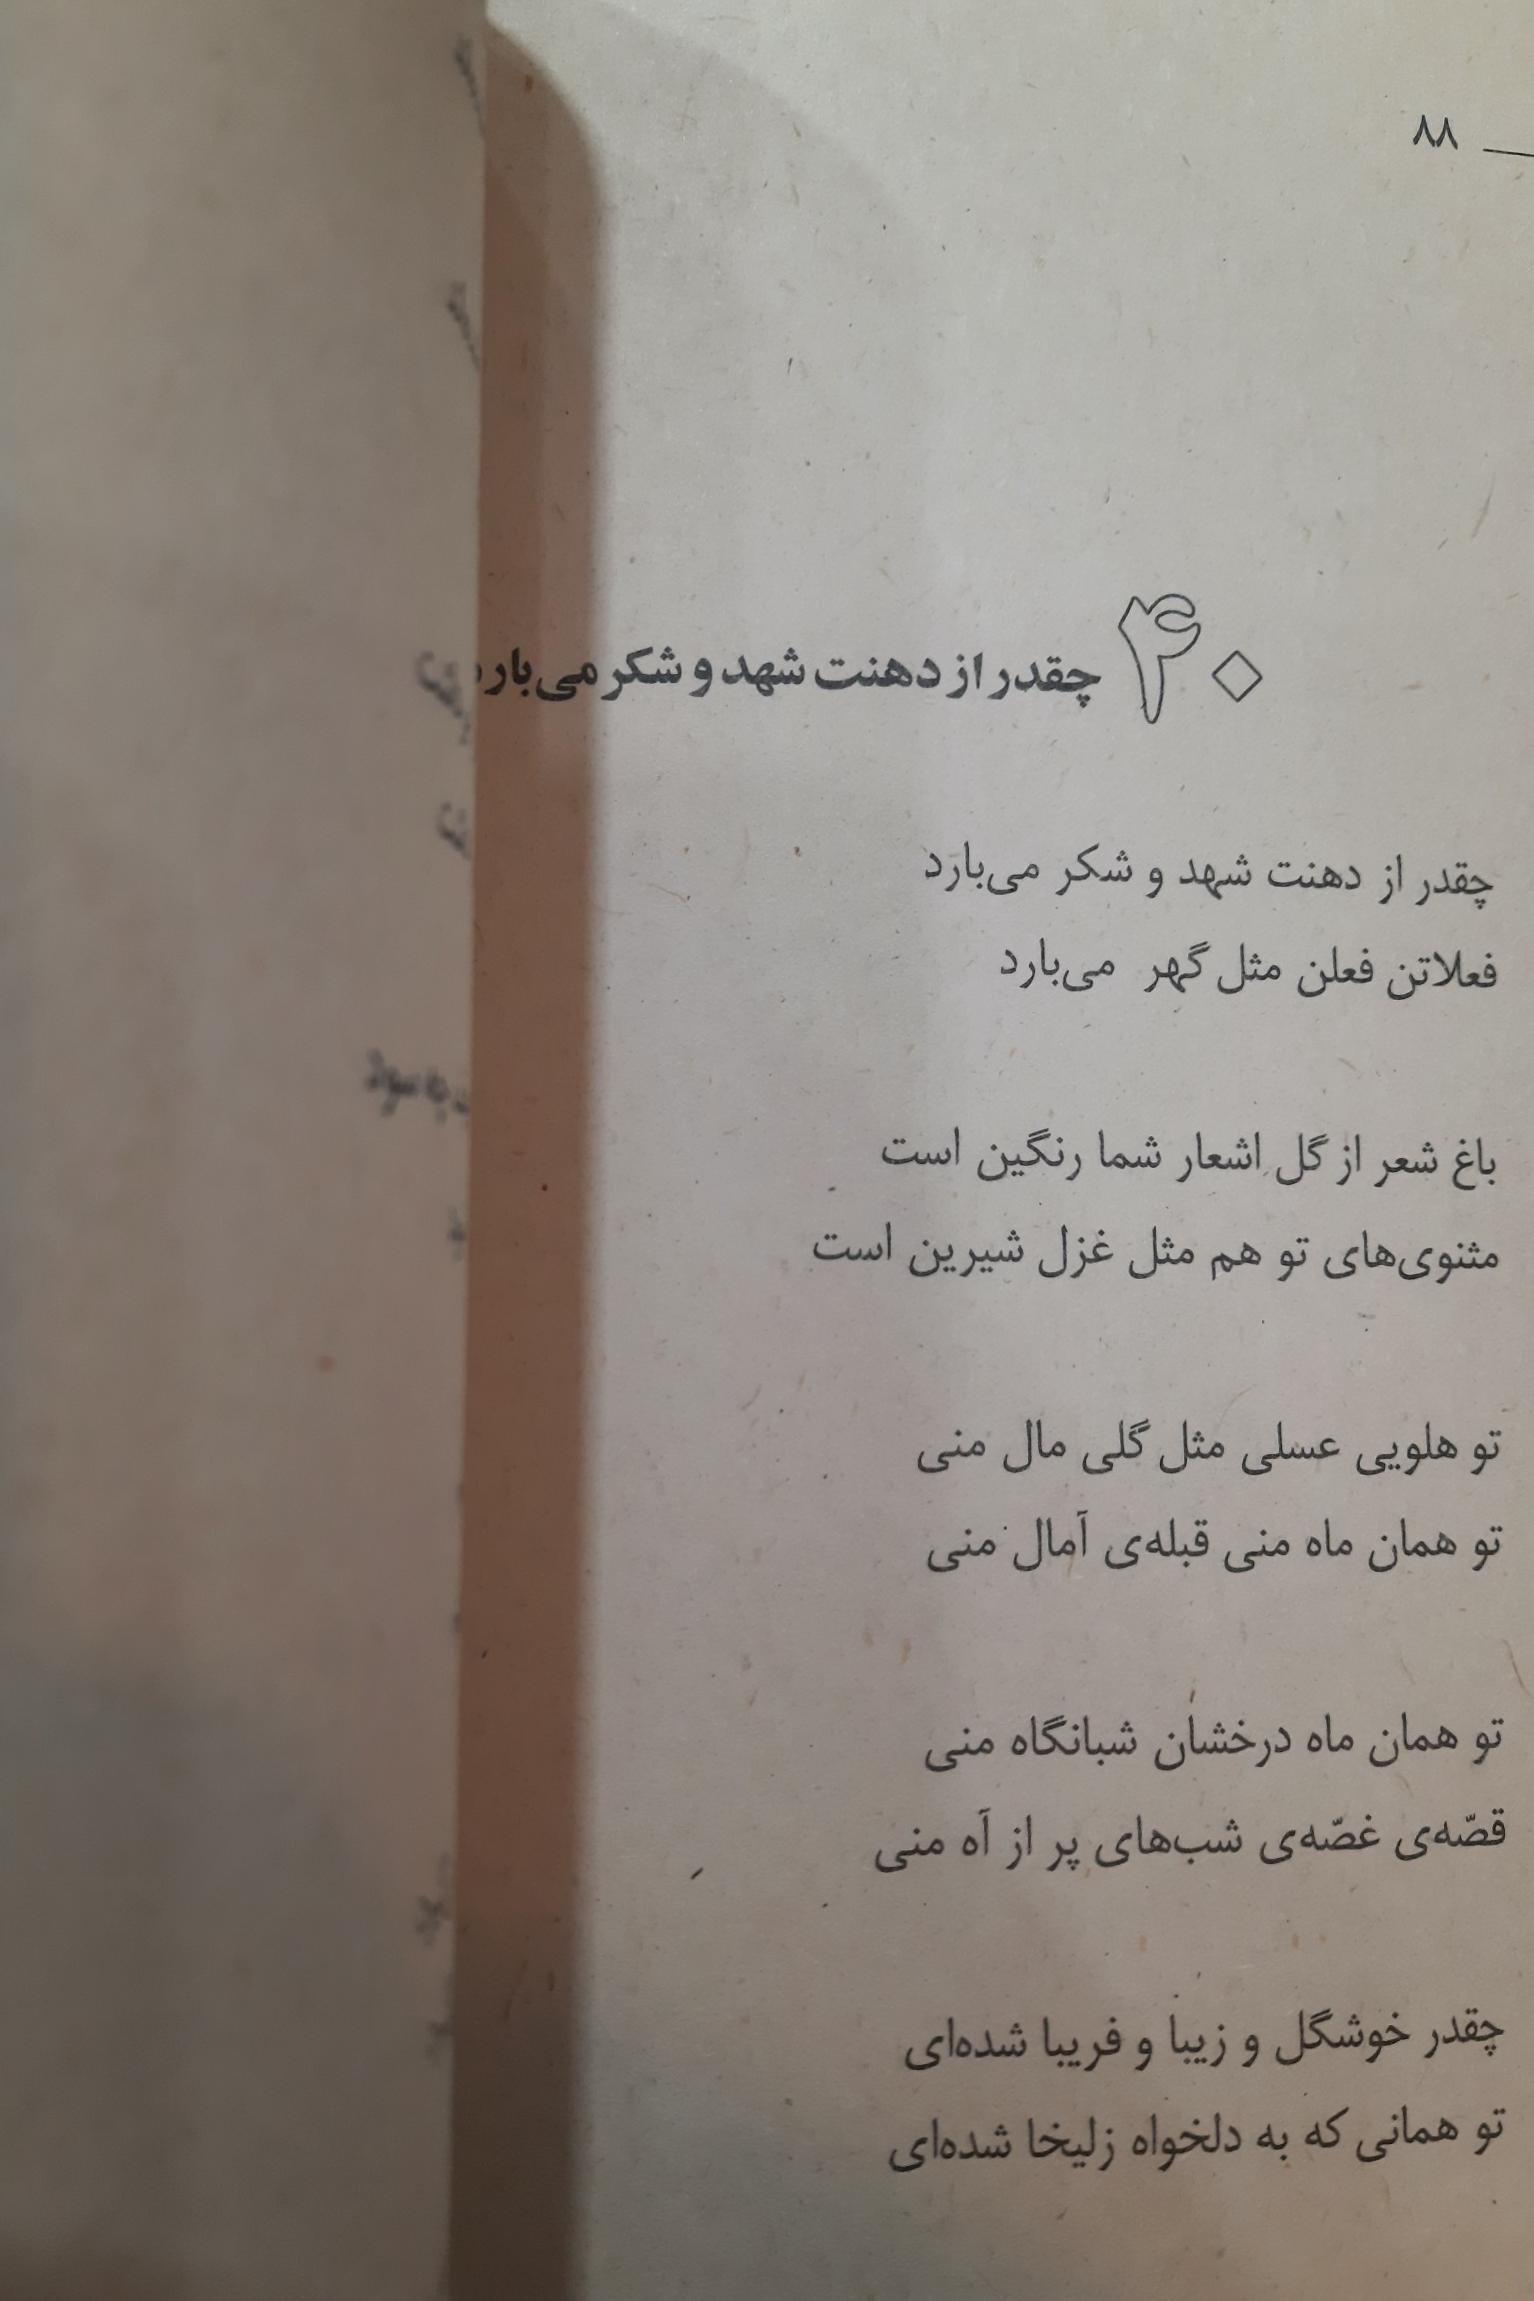 ۸۸
۴۰ چقدر از دهنت شهد و شکر می‌بارد
چقدر از دهنت شهد و شکر می‌بارد
فعلاتن فعلن مثل گهر می‌بارد
باغ شعر از گل اشعار شما رنگین است
مثنوی‌های تو هم مثل غزل شیرین است
تو هلویی عسلی مثل گلی مال منی
تو همان ماه منی قبله‌ی آمال منی
تو همان ماه درخشان شبانگاه منی
قصّه‌ی غصّه‌ی شب‌های پر از آه منی
چقدر خوشگل و زیبا و فریبا شده‌ای
تو همانی که به دلخواه زلیخا شده‌ای